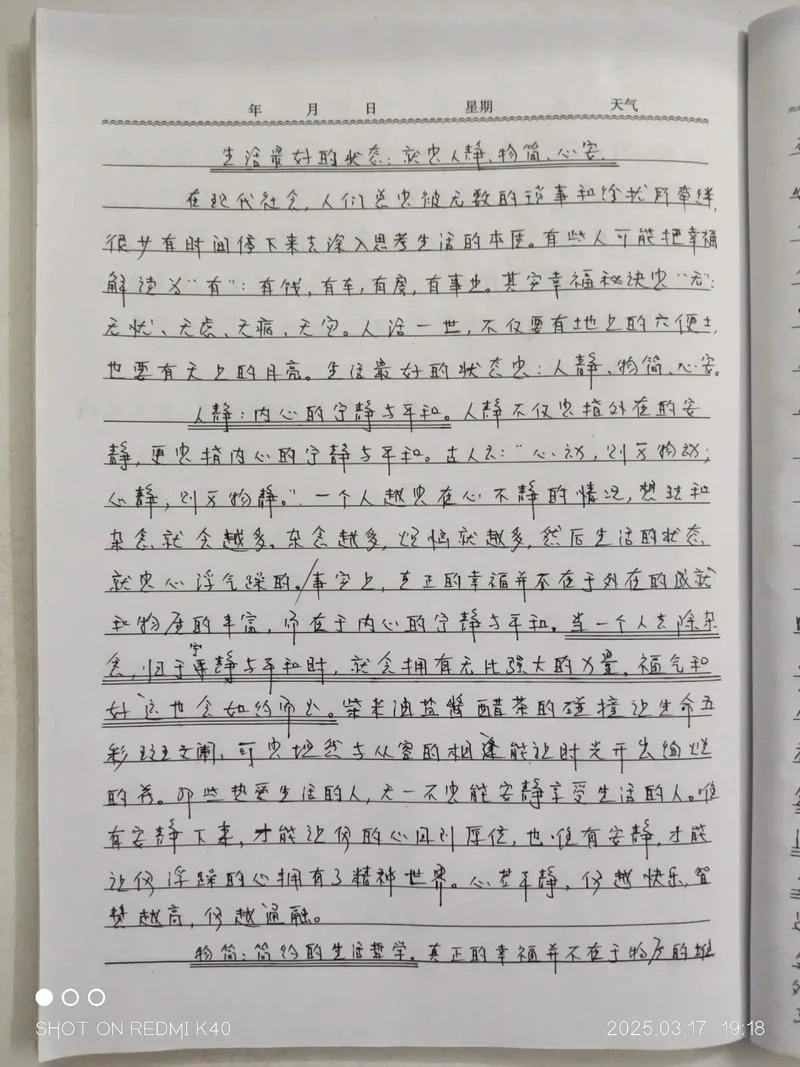 年 月 日 星期 天气
生活最好的状态:就是人静、物简、心安.
在现代社会,人们总是被无数的琐事和纷扰所牵绊,
很少有时间停下来去深入思考生活的本质。有些人可能把幸福
解读为“有”:有钱,有车,有房,有事业。其实幸福秘诀是“无”:
无忧、无虑、无病、无灾。人活一世,不仅要有地上的六便士,
也要有天上的月亮。生活最好的状态是:人静、物简、心安。
人静:内心的宁静与平和。人静不仅是指外在的安
静,更是指内心的宁静与平和。古人云:“心动,则万物动;
心静,则万物静。”一个人越是在心不静的情况,想法和
杂念就会越多。杂念越多,烦恼就越多,然后生活的状态
就是心浮气躁的。/事实上,真正的幸福并不在于外在的成就
和物质的丰富,而在于内心的宁静与平和。当一个人去除杂
念,归于宁静与平和时,就会拥有无比强大的力量,福气和
好运也会如约而至。柴米油盐酱醋茶的碰撞让生命五
彩斑斓,可是坦然与从容的相逢能让时光开出绚烂
的花。那些热爱生活的人,无一不是能安静享受生活的人。唯
有安静下来,才能让你的心回到原位,也唯有安静,才能
让你浮躁的心拥有了精神世界。心若平静,你越快乐,智
慧越高,你越通融。
物简:简约的生活哲学。真正的幸福并不在于物质的堆
SHOT ON REDMI K40
2025.03.17 19:18